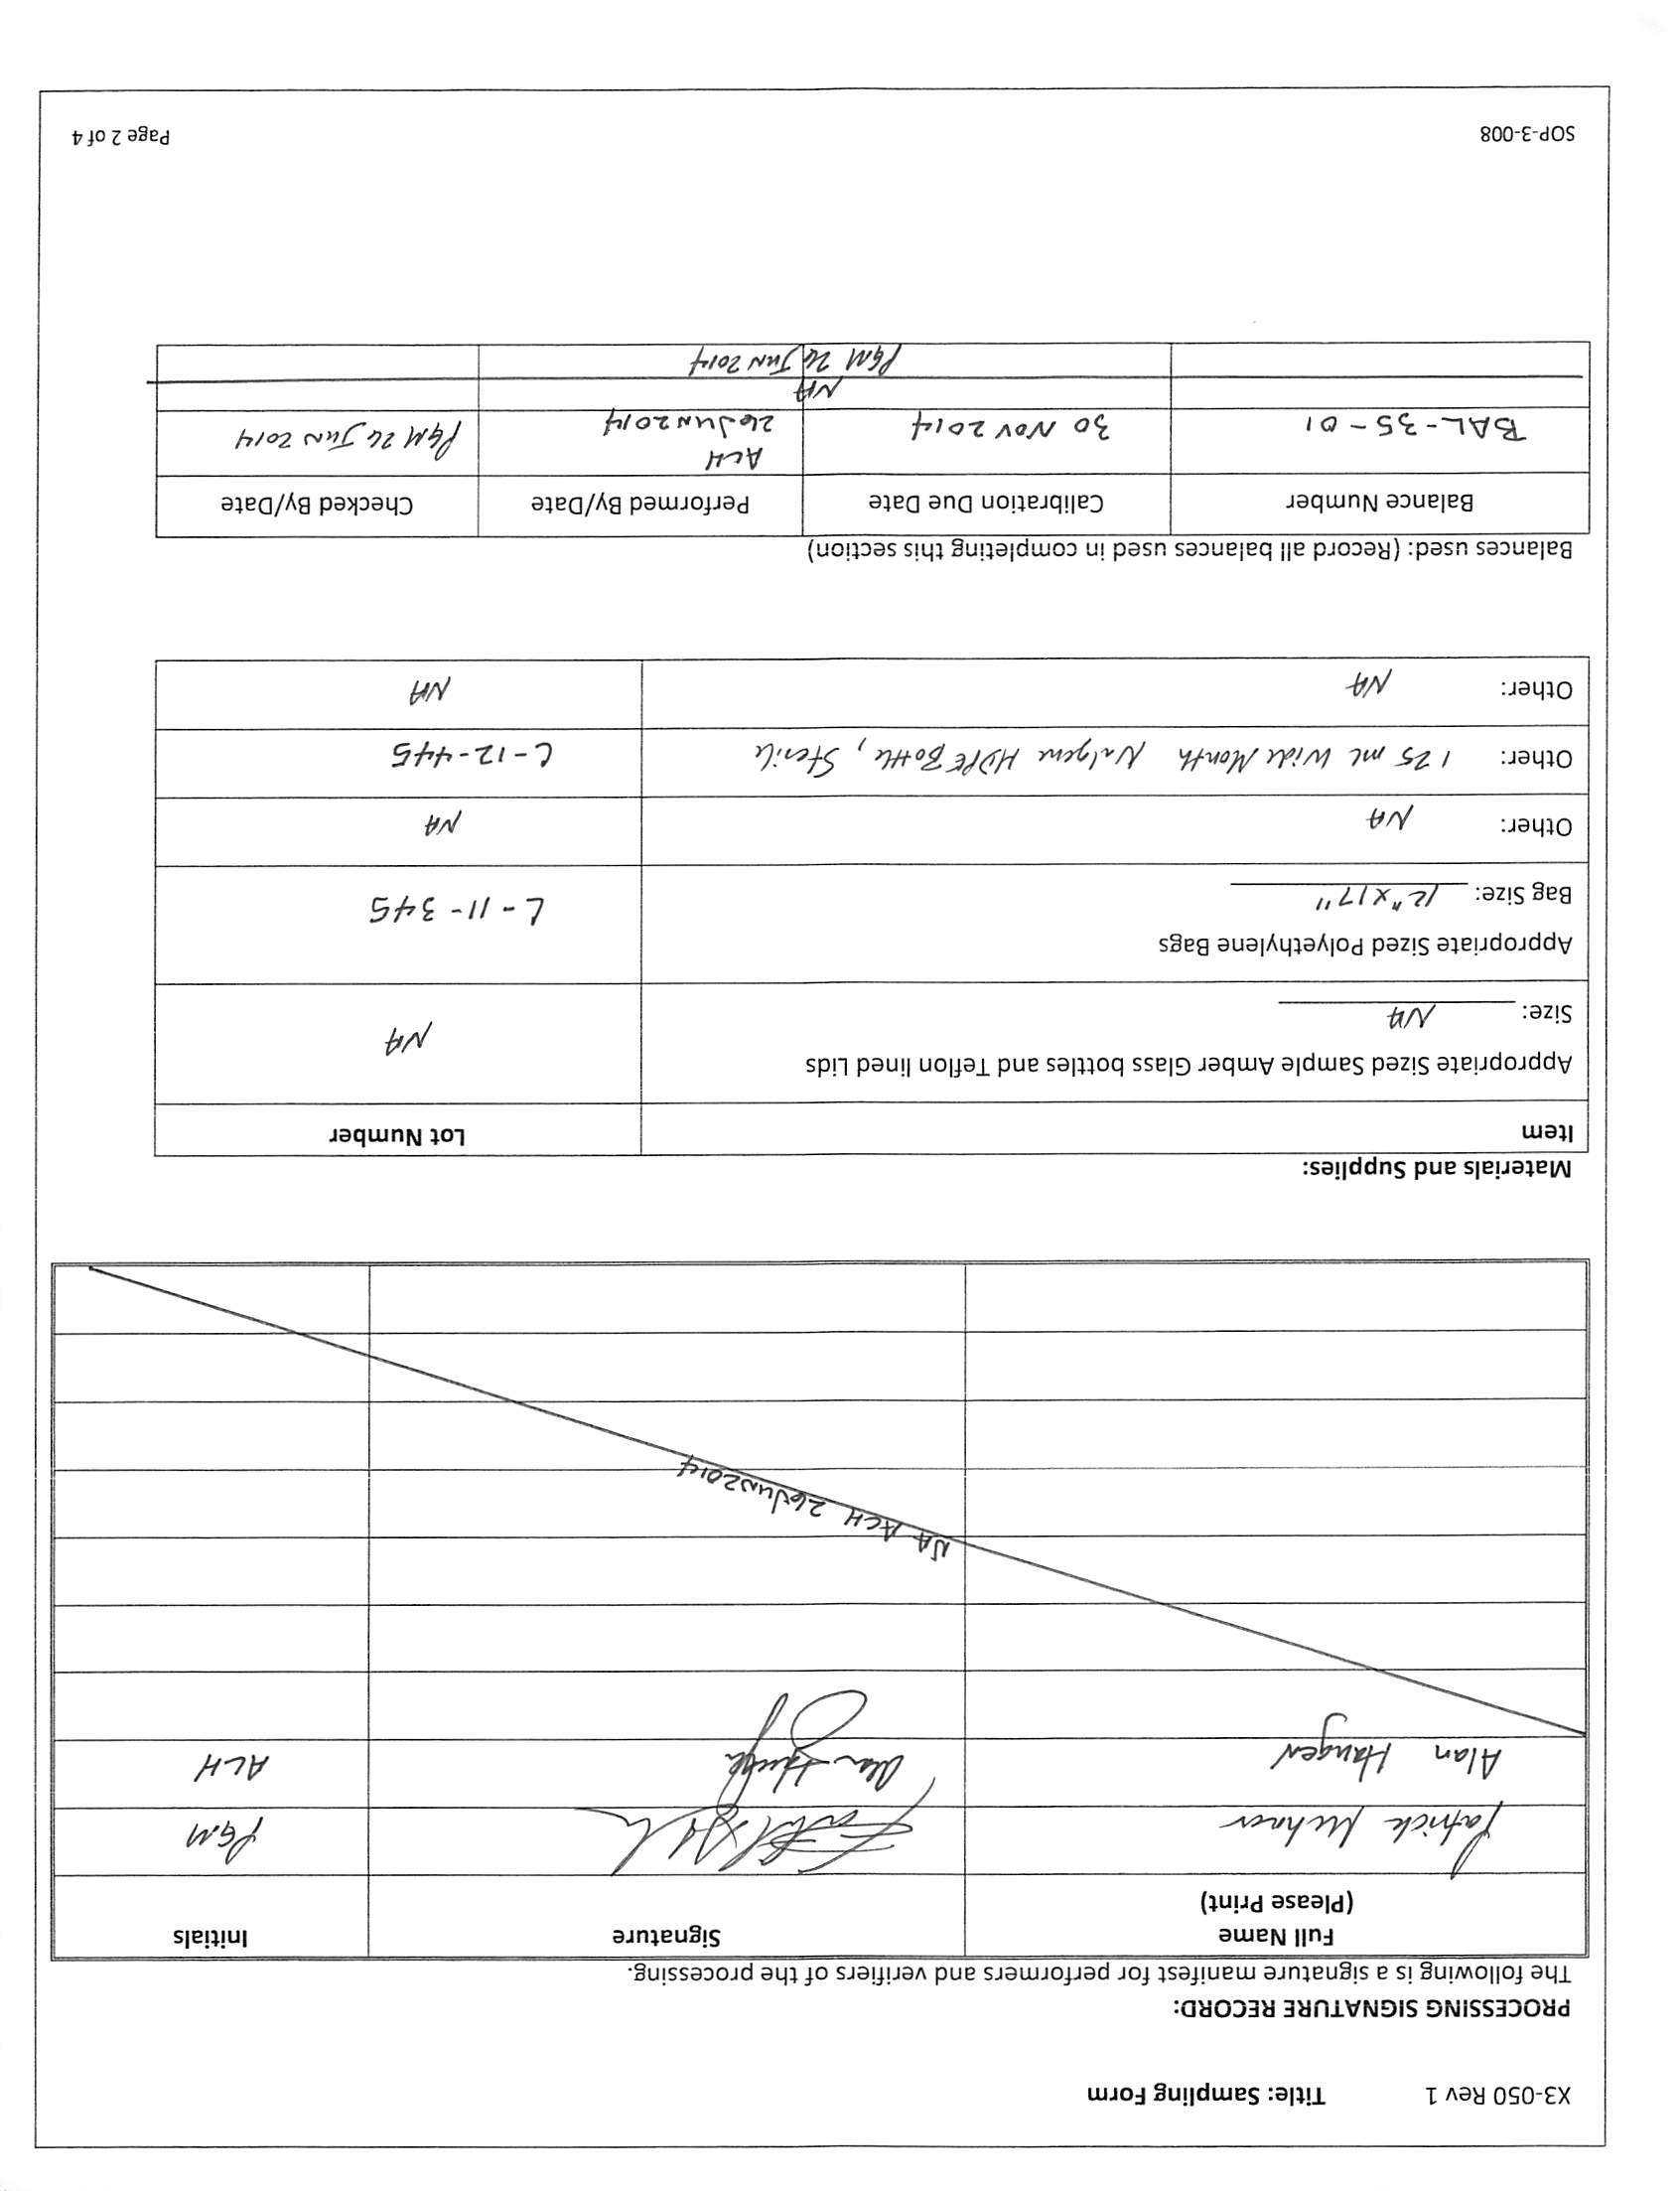 X3-050 Rev 1 Title: Sampling Form
PROCESSING SIGNATURE RECORD:
The following is a signature manifest for performers and verifiers of the processing.
Full Name
(Please Print) Signature Initials
Patrick PGM
Alan Hanger ACH
NA ACH 26Jun2014
Materials and Supplies:
Item Lot Number
Appropriate Sized Sample Amber Glass bottles and Teflon lined Lids
Size: NA NA
Appropriate Sized Polyethylene Bags
Bag Size: 12"x17" L-11-345
Other: NA NA
Other: 125 mL Wide Mouth Nalgene HDPE Bottle, Sterile C-12-445
Other: NA NA
Balances used: (Record all balances used in completing this section)
Balance Number Calibration Due Date Performed By/Date Checked By/Date
BAL-35-01 30 NOV 2014 ACH 26JUN2014 PGM 26 JUN 2014
NA
PGM 26 JUN 2014
SOP-3-008 Page 2 of 4